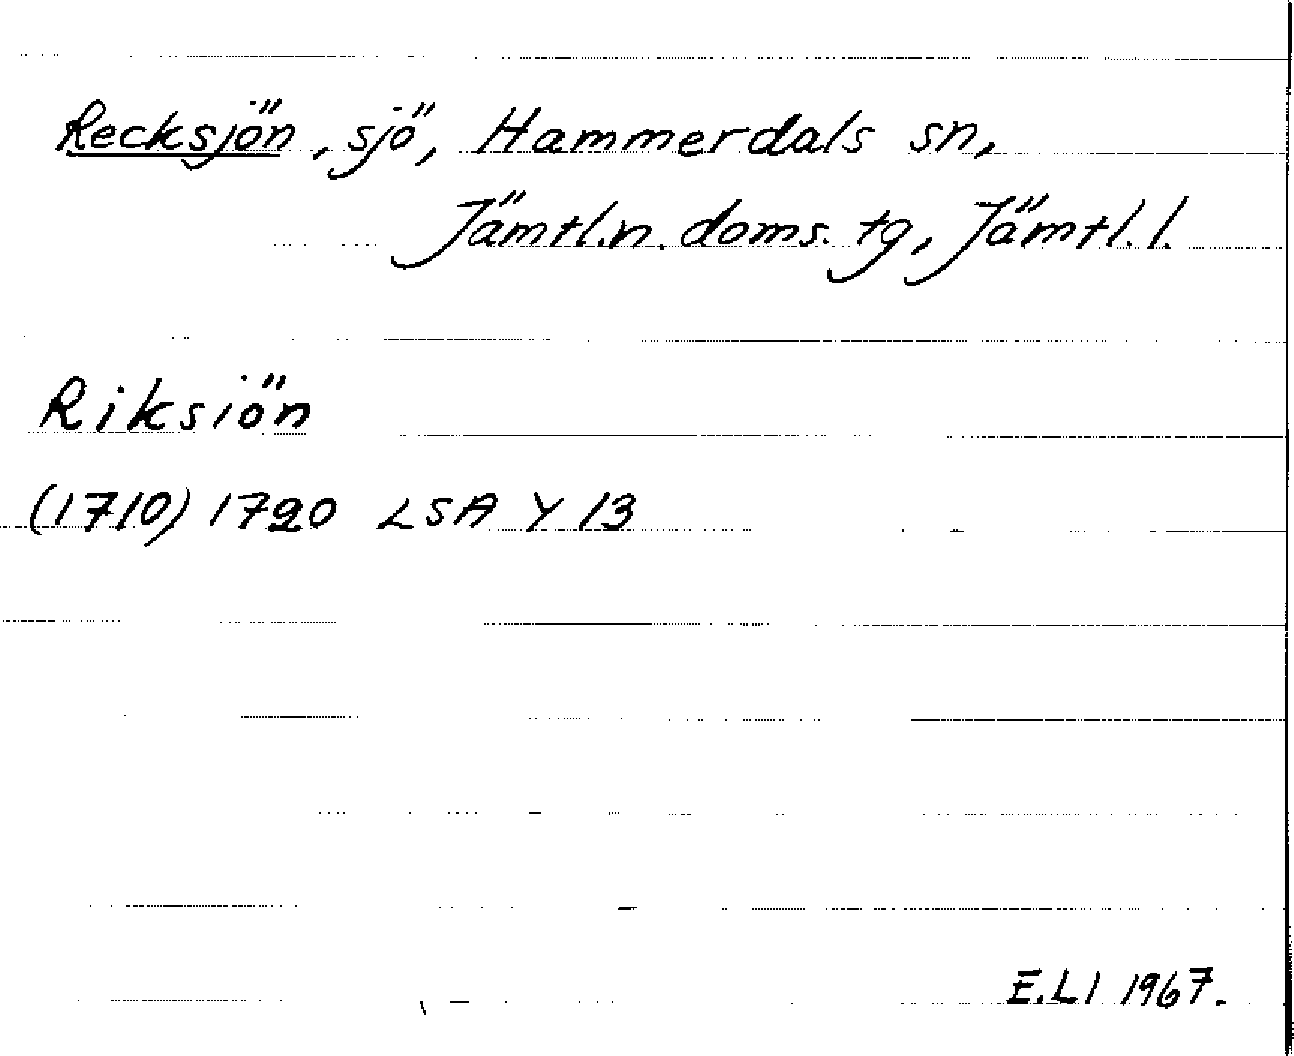 Recksjön, sjö, Hammerdals sn,
Jämtl.n. doms. tg, Jämtl. l.
Riksiön
(1710) 1720 LSA Y 13
E.Ll 1967.